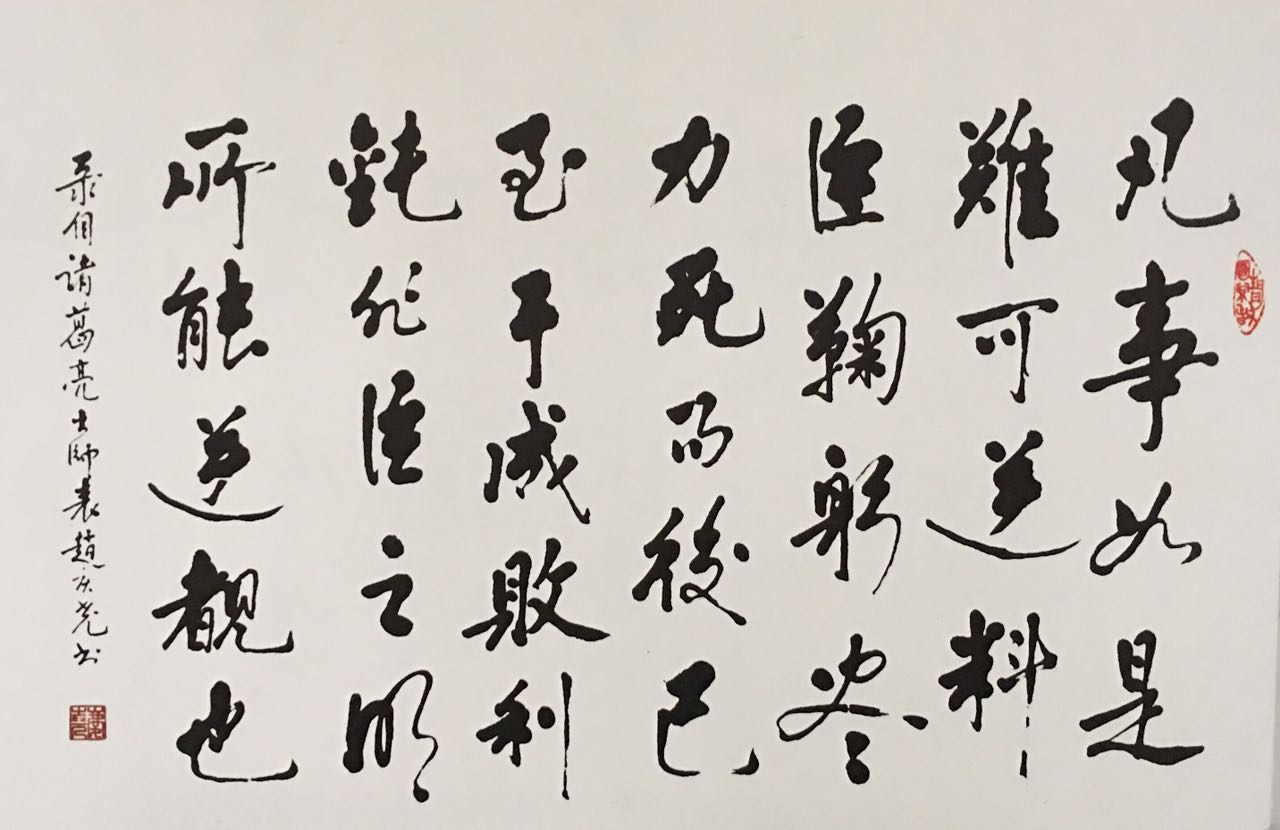 凡事如是
難可逆料
臣鞠躬尽
力死而後已
至于成敗利
鈍非臣之明
所能逆覩也
录自諸葛亮出師表趙庆尧书